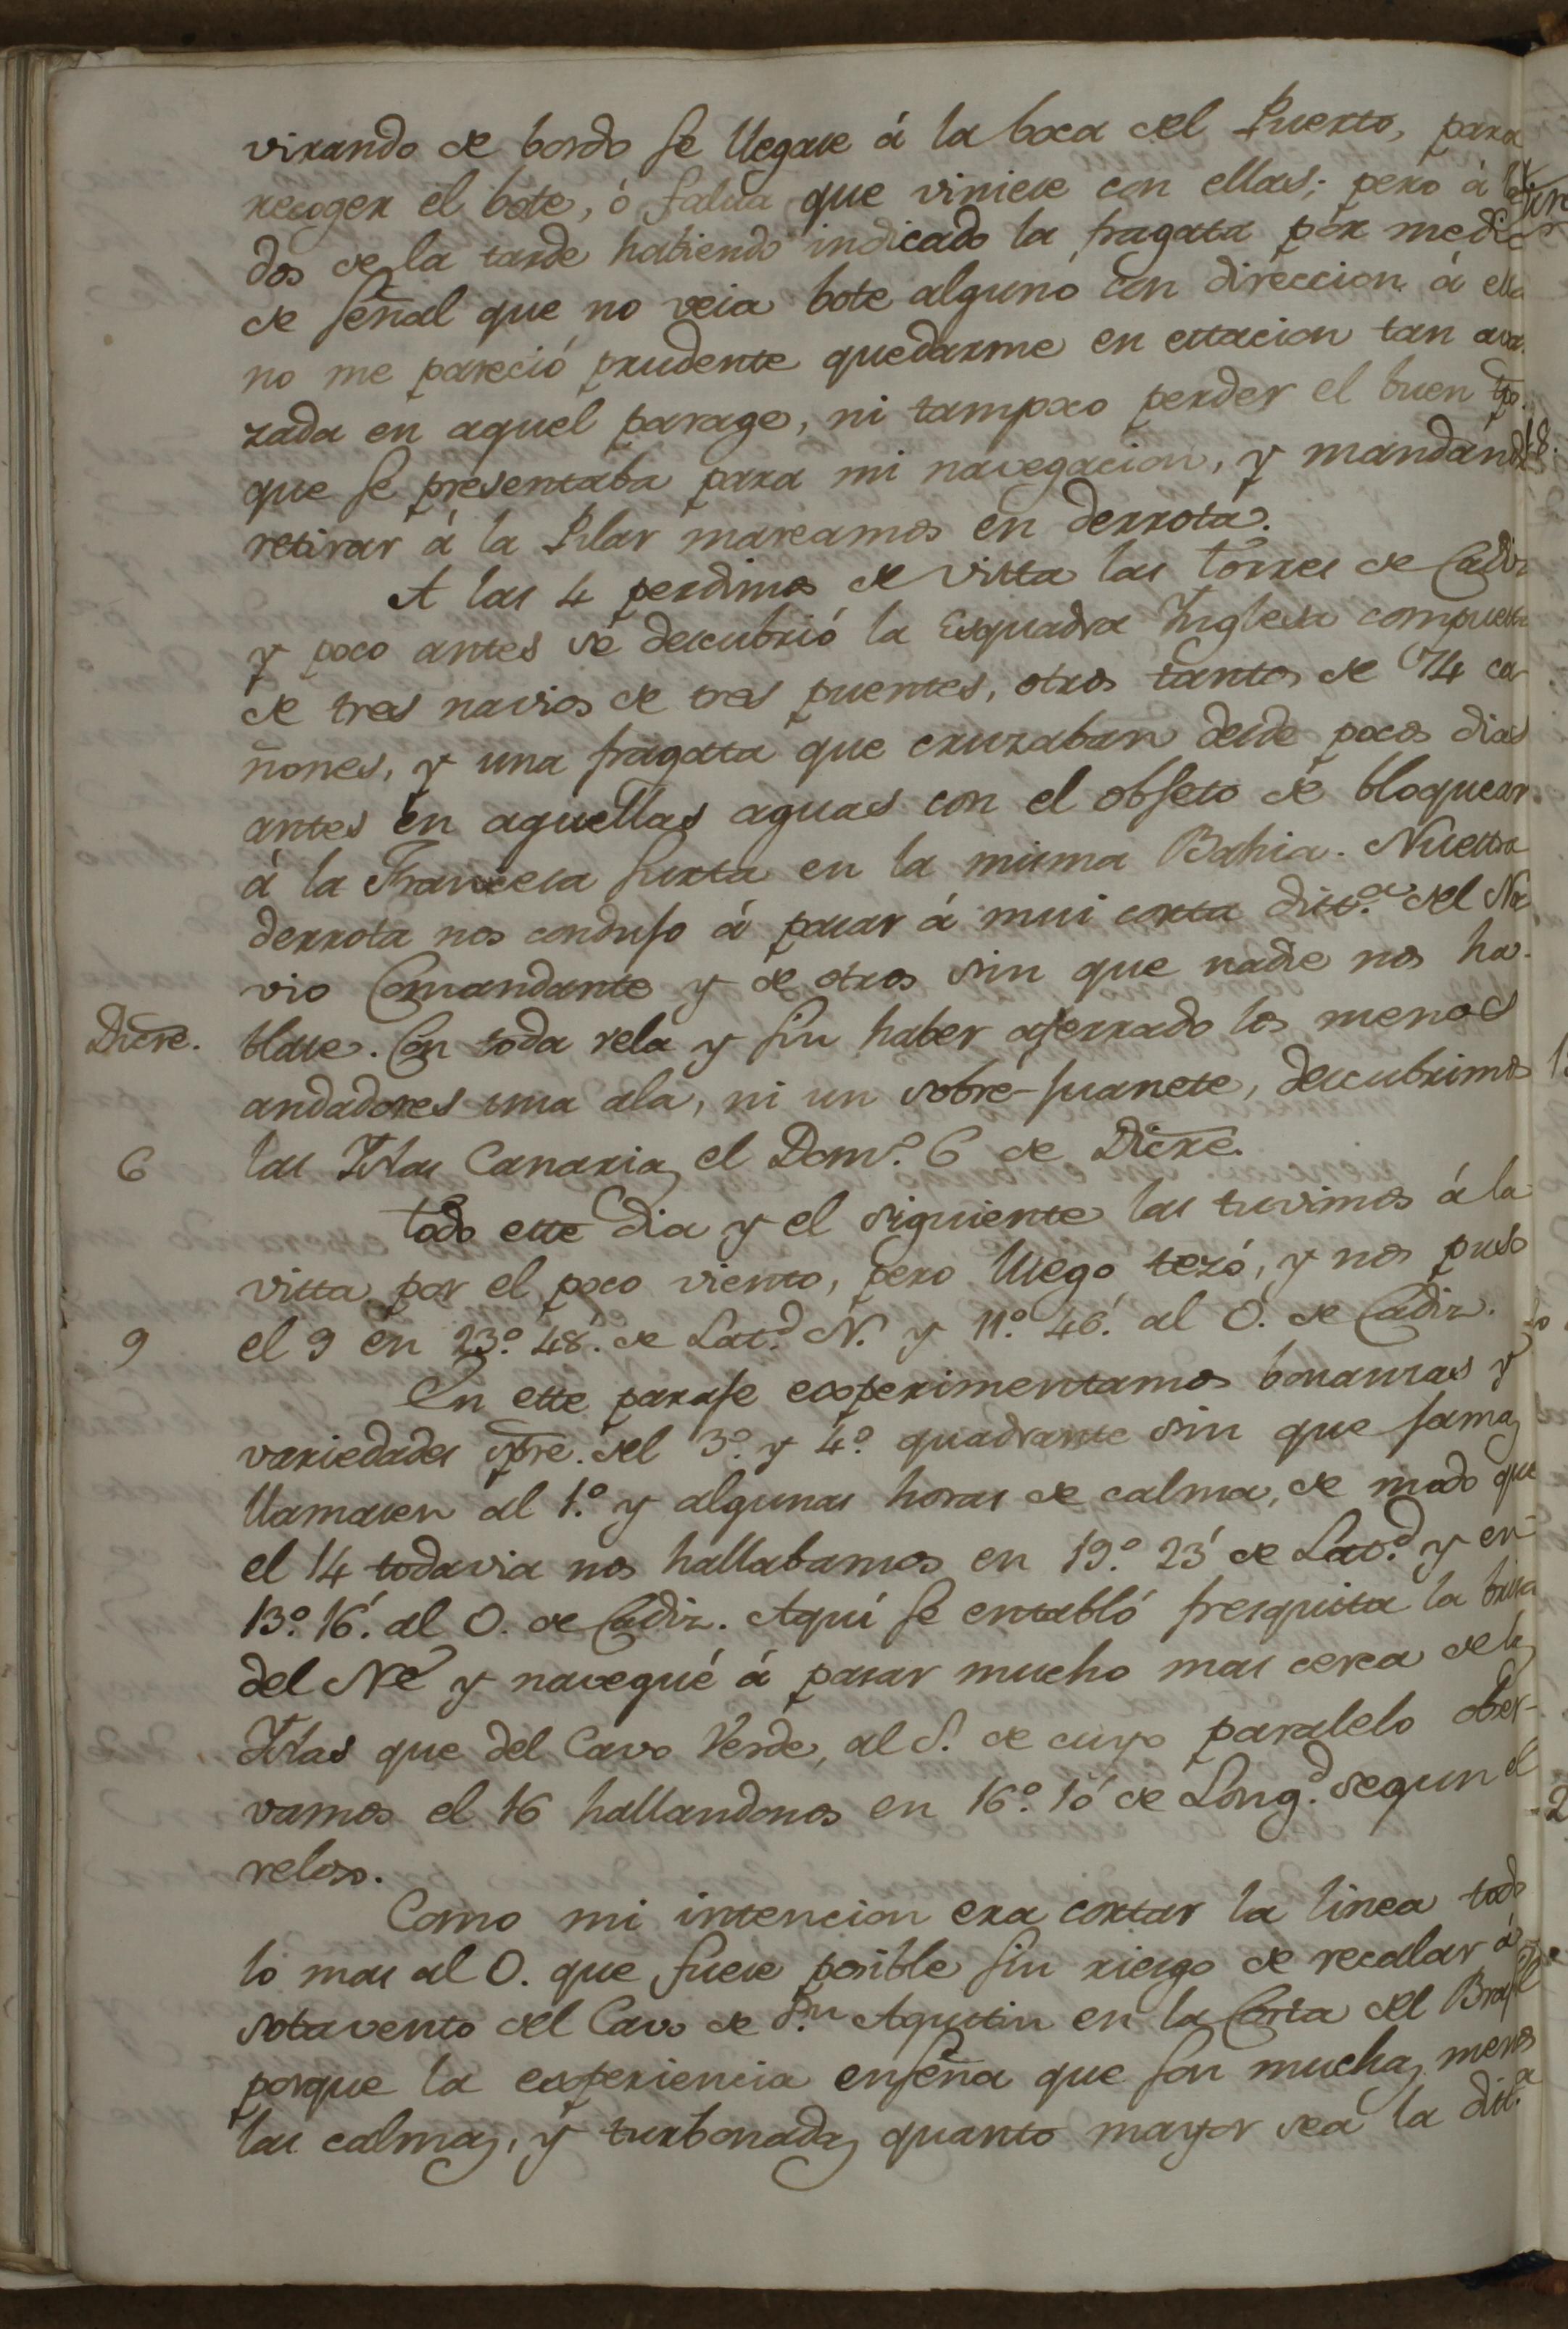 virando de bordo se llegase á la boca del Puerto, para
recoger el bote, ó falúa que viniese con ellas; pero á las
dos de la tarde habiendo indicado la fragata por medio
de señal que no veia bote alguno con direccion á ella
no me pareció prudente quedarme en estacion tan avan-
zada en aquel parage, ni tampoco perder el buen tpo.
que se presentaba para mi navegacion, y mandando
retirar á la Pilar mareamos en derrota.
A las 4 perdimos de vista las Torres de Cadiz
y poco antes se descubrió la Esquadra Inglesa compuesta
de tres navios de tres puentes, otros tantos de 74 ca-
ñones, y una fragata que cruzaban desde pocos dias
antes en aquellas aguas con el objeto de bloquear
á la Francesa surta en la misma Bahia. Nuestra
derrota nos condujo á pasar á mui corta dist.ª del Na-
vio Comandante y de otros sin que nadie nos ha-
Dicre. blase. Con toda vela y sin haber aferrado los menos
andadores una ala, ni un sobre-juanete, descubrimos
6 las Islas Canarias el Dom.º 6 de Dicre.
Todo este dia y el siguiente las tuvimos á la
vista por el poco viento, pero luego tezó, y nos puso
9 el 9 en 23.º 48.' de Lat.d N. y 11.º 46.' al O. de Cadiz.
En este paraje experimentamos bonanzas y
variedades spre. del 3.º y 4.º quadrante sin que jamas
llamasen al 1.º y algunas horas de calma, de modo que
el 14 todavia nos hallabamos en 19.º 23' de Lat.d y en
13.º 16.' al O. de Cadiz. Aquí se entabló fresquita la brisa
del NE y navegué á pasar mucho mas cerca de las
Islas que del Cavo Verde, al S. de cuyo paralelo obser-
vamos el 16 hallandonos en 16.º 10' de Long.d segun el
relox.
Como mi intencion era cortar la linea todo
lo mas al O. que fuese posible sin riesgo de recalar á
sotavento del Cavo de S.n Agustin en la Costa del Brasil
porque la experiencia enseña que son muchas menos
las calmas, y turbonadas quanto mayor sea la dist.ª